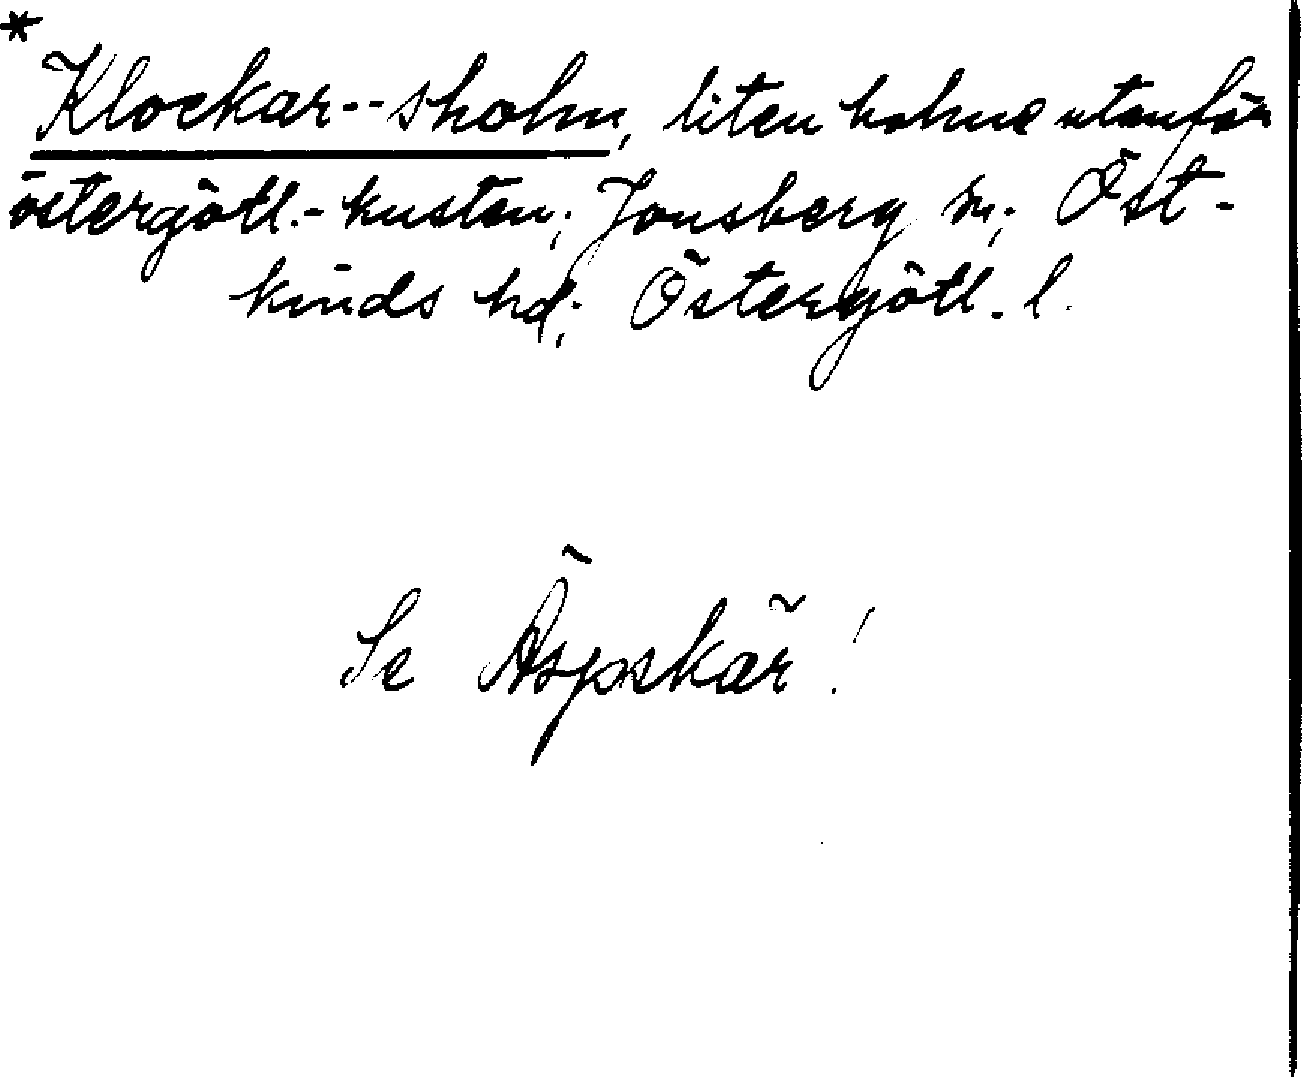 *
Klockar--sholm, liten holme utanför
östergötl.-kusten; Jonsberg sn; Öst-
kinds hd; Östergötl. l.
Se Äspskär!